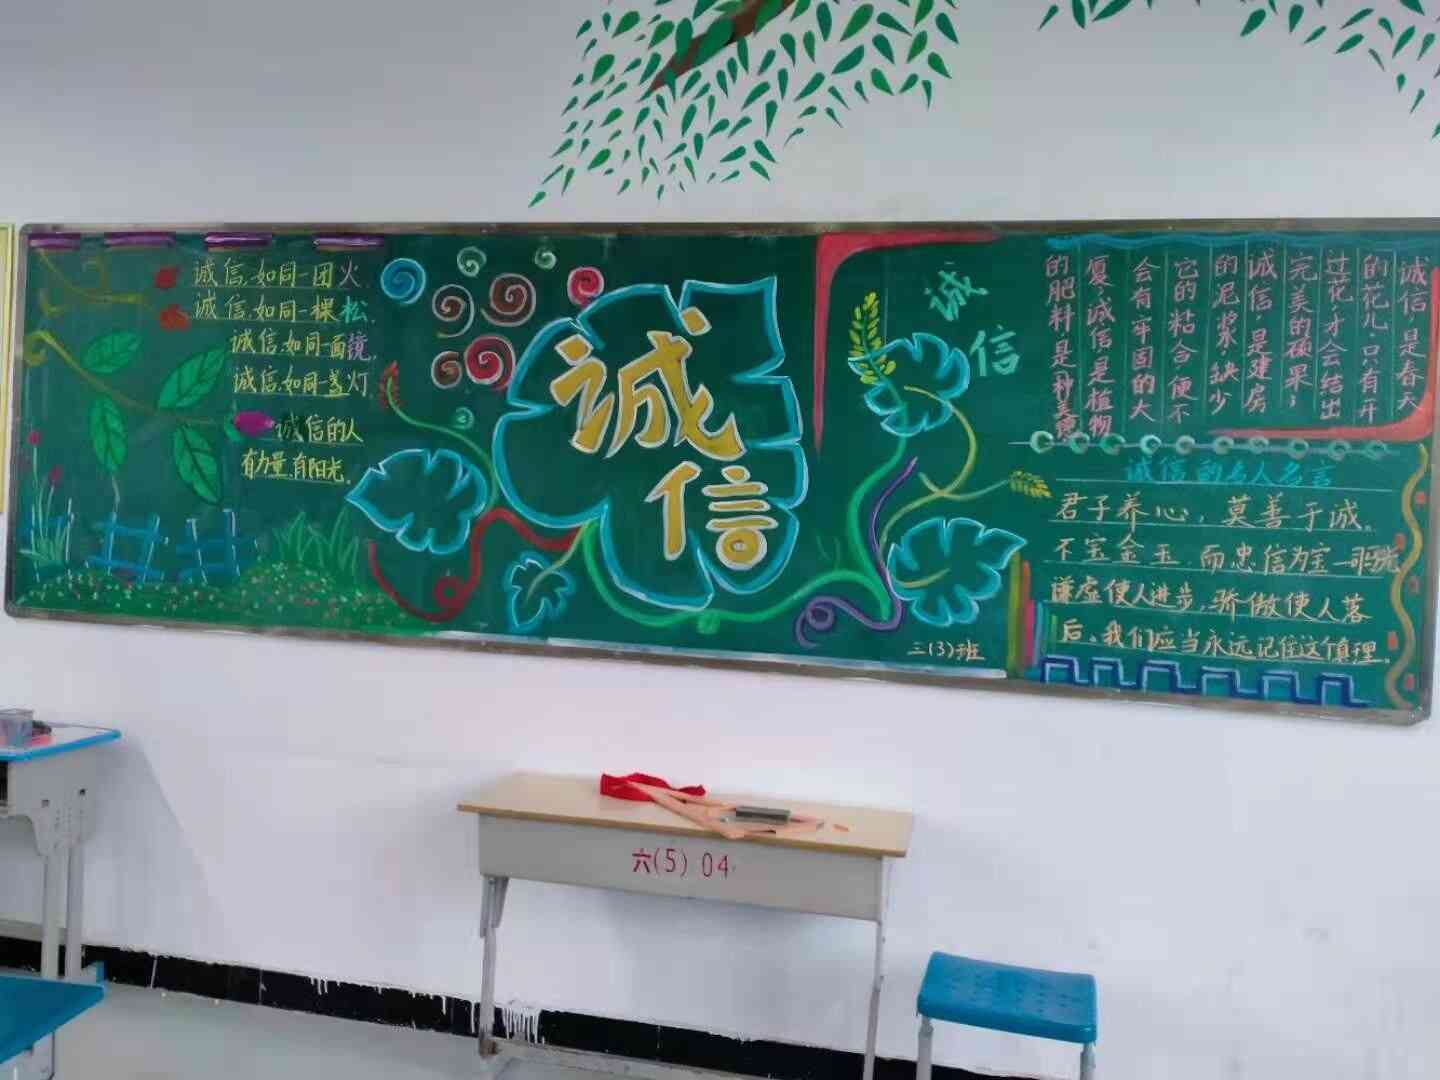 诚信,如同一团火,
诚信,如同一棵松,
诚信,如同一面镜,
诚信,如同一盏灯
诚信的人
有力量,有阳光。
诚
信
诚
信
诚信是春天
的花儿,只有开
过花,才会结出
完美的硕果;
诚信是建房
的泥浆,缺少
它的粘合,便不
会有牢固的大
厦;诚信是植物
的肥料是一种美德
诚信的名人名言
君子养心,莫善于诚。
不宝金玉,而忠信为宝
谦虚使人进步,骄傲使人落
后。我们应当永远记住这个真理。
三(3)班
六(5) 04